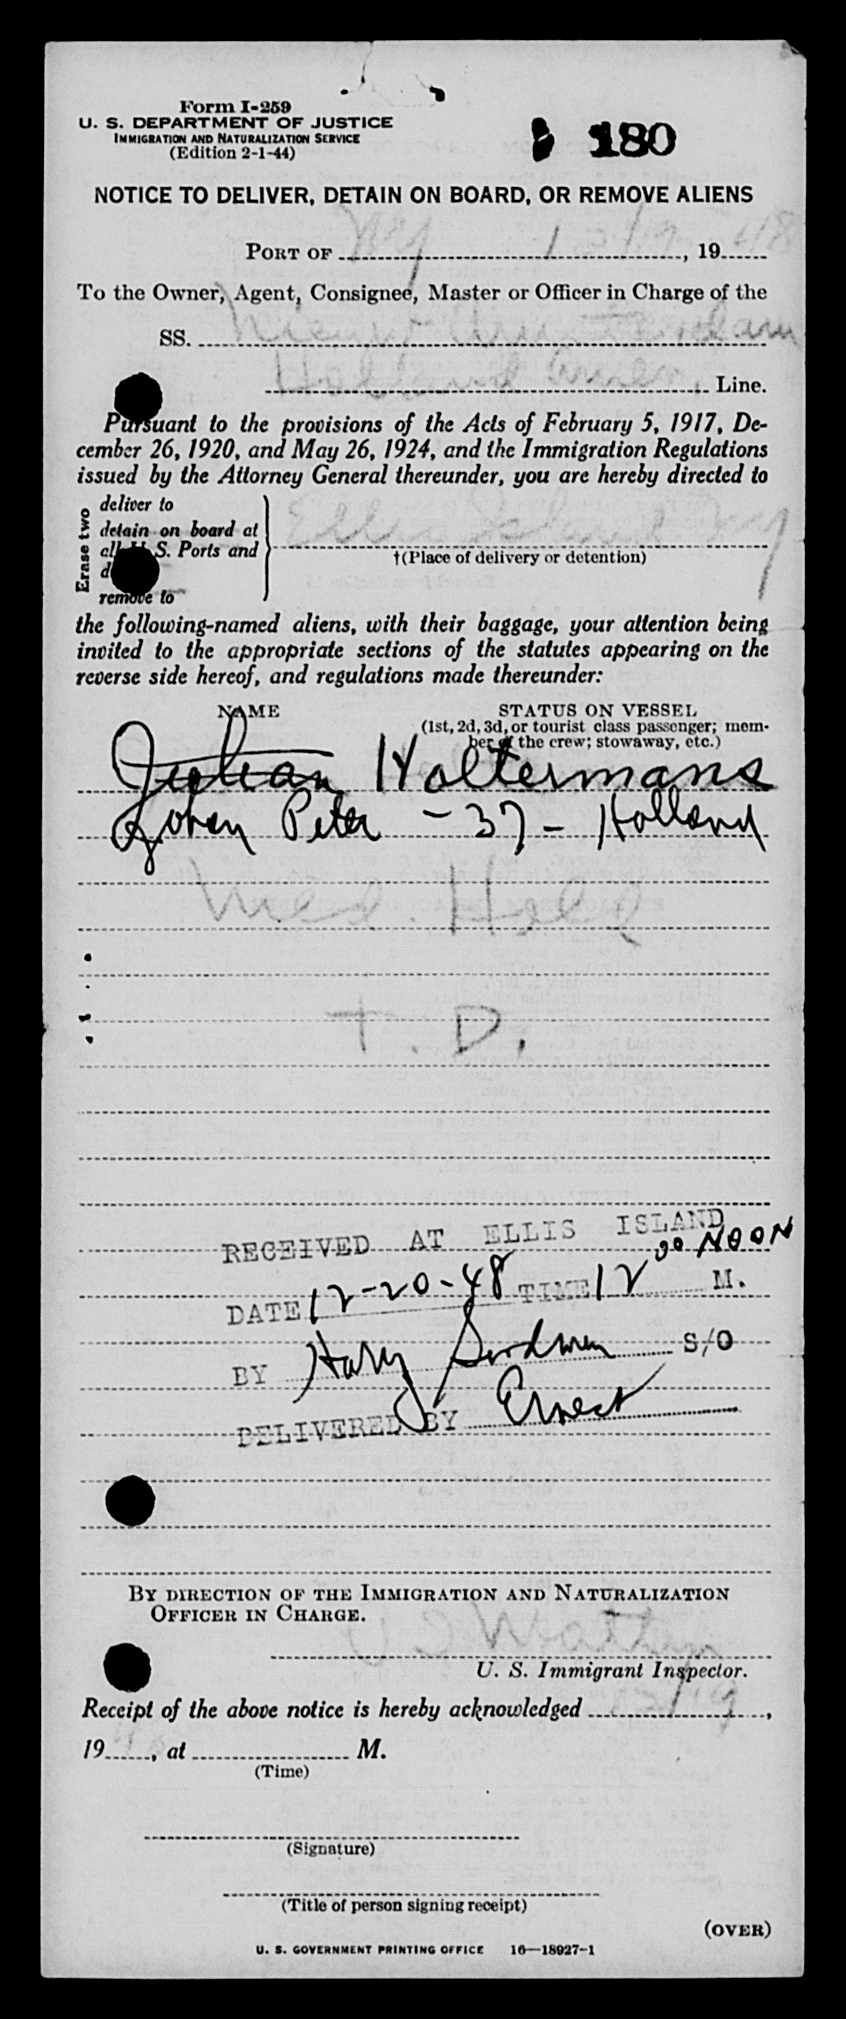 Form I-259
U. S. DEPARTMENT OF JUSTICE
IMMIGRATION AND NATURALIZATION SERVICE
(Edition 2-1-44)
180
NOTICE TO DELIVER, DETAIN ON BOARD, OR REMOVE ALIENS
PORT OF NY 12/19, 1948
To the Owner, Agent, Consignee, Master or Officer in Charge of the
SS. Nieuw Amsterdam
Holland Amer. Line.
Pursuant to the provisions of the Acts of February 5, 1917, De-
cember 26, 1920, and May 26, 1924, and the Immigration Regulations
issued by the Attorney General thereunder, you are hereby directed to
Erase two
deliver to
detain on board at
all U. S. Ports and
remove to
Ellis Island NY
†(Place of delivery or detention)
the following-named aliens, with their baggage, your attention being
invited to the appropriate sections of the statutes appearing on the
reverse side hereof, and regulations made thereunder:
NAME STATUS ON VESSEL
(1st, 2d, 3d, or tourist class passenger; mem-
ber of the crew; stowaway, etc.)
Holtermans
Johan Peter - 37 - Holland
Med. Held
T. D.
RECEIVED AT ELLIS ISLAND
DATE 12-20-48 TIME 12 00 NOON M.
BY Harry S/O
DELIVERED BY Ernest
BY DIRECTION OF THE IMMIGRATION AND NATURALIZATION
OFFICER IN CHARGE.
U. S. Immigrant Inspector.
Receipt of the above notice is hereby acknowledged 12/19,
19 48, at M.
(Time)
(Signature)
(Title of person signing receipt)
(OVER)
U. S. GOVERNMENT PRINTING OFFICE 16—18927-1